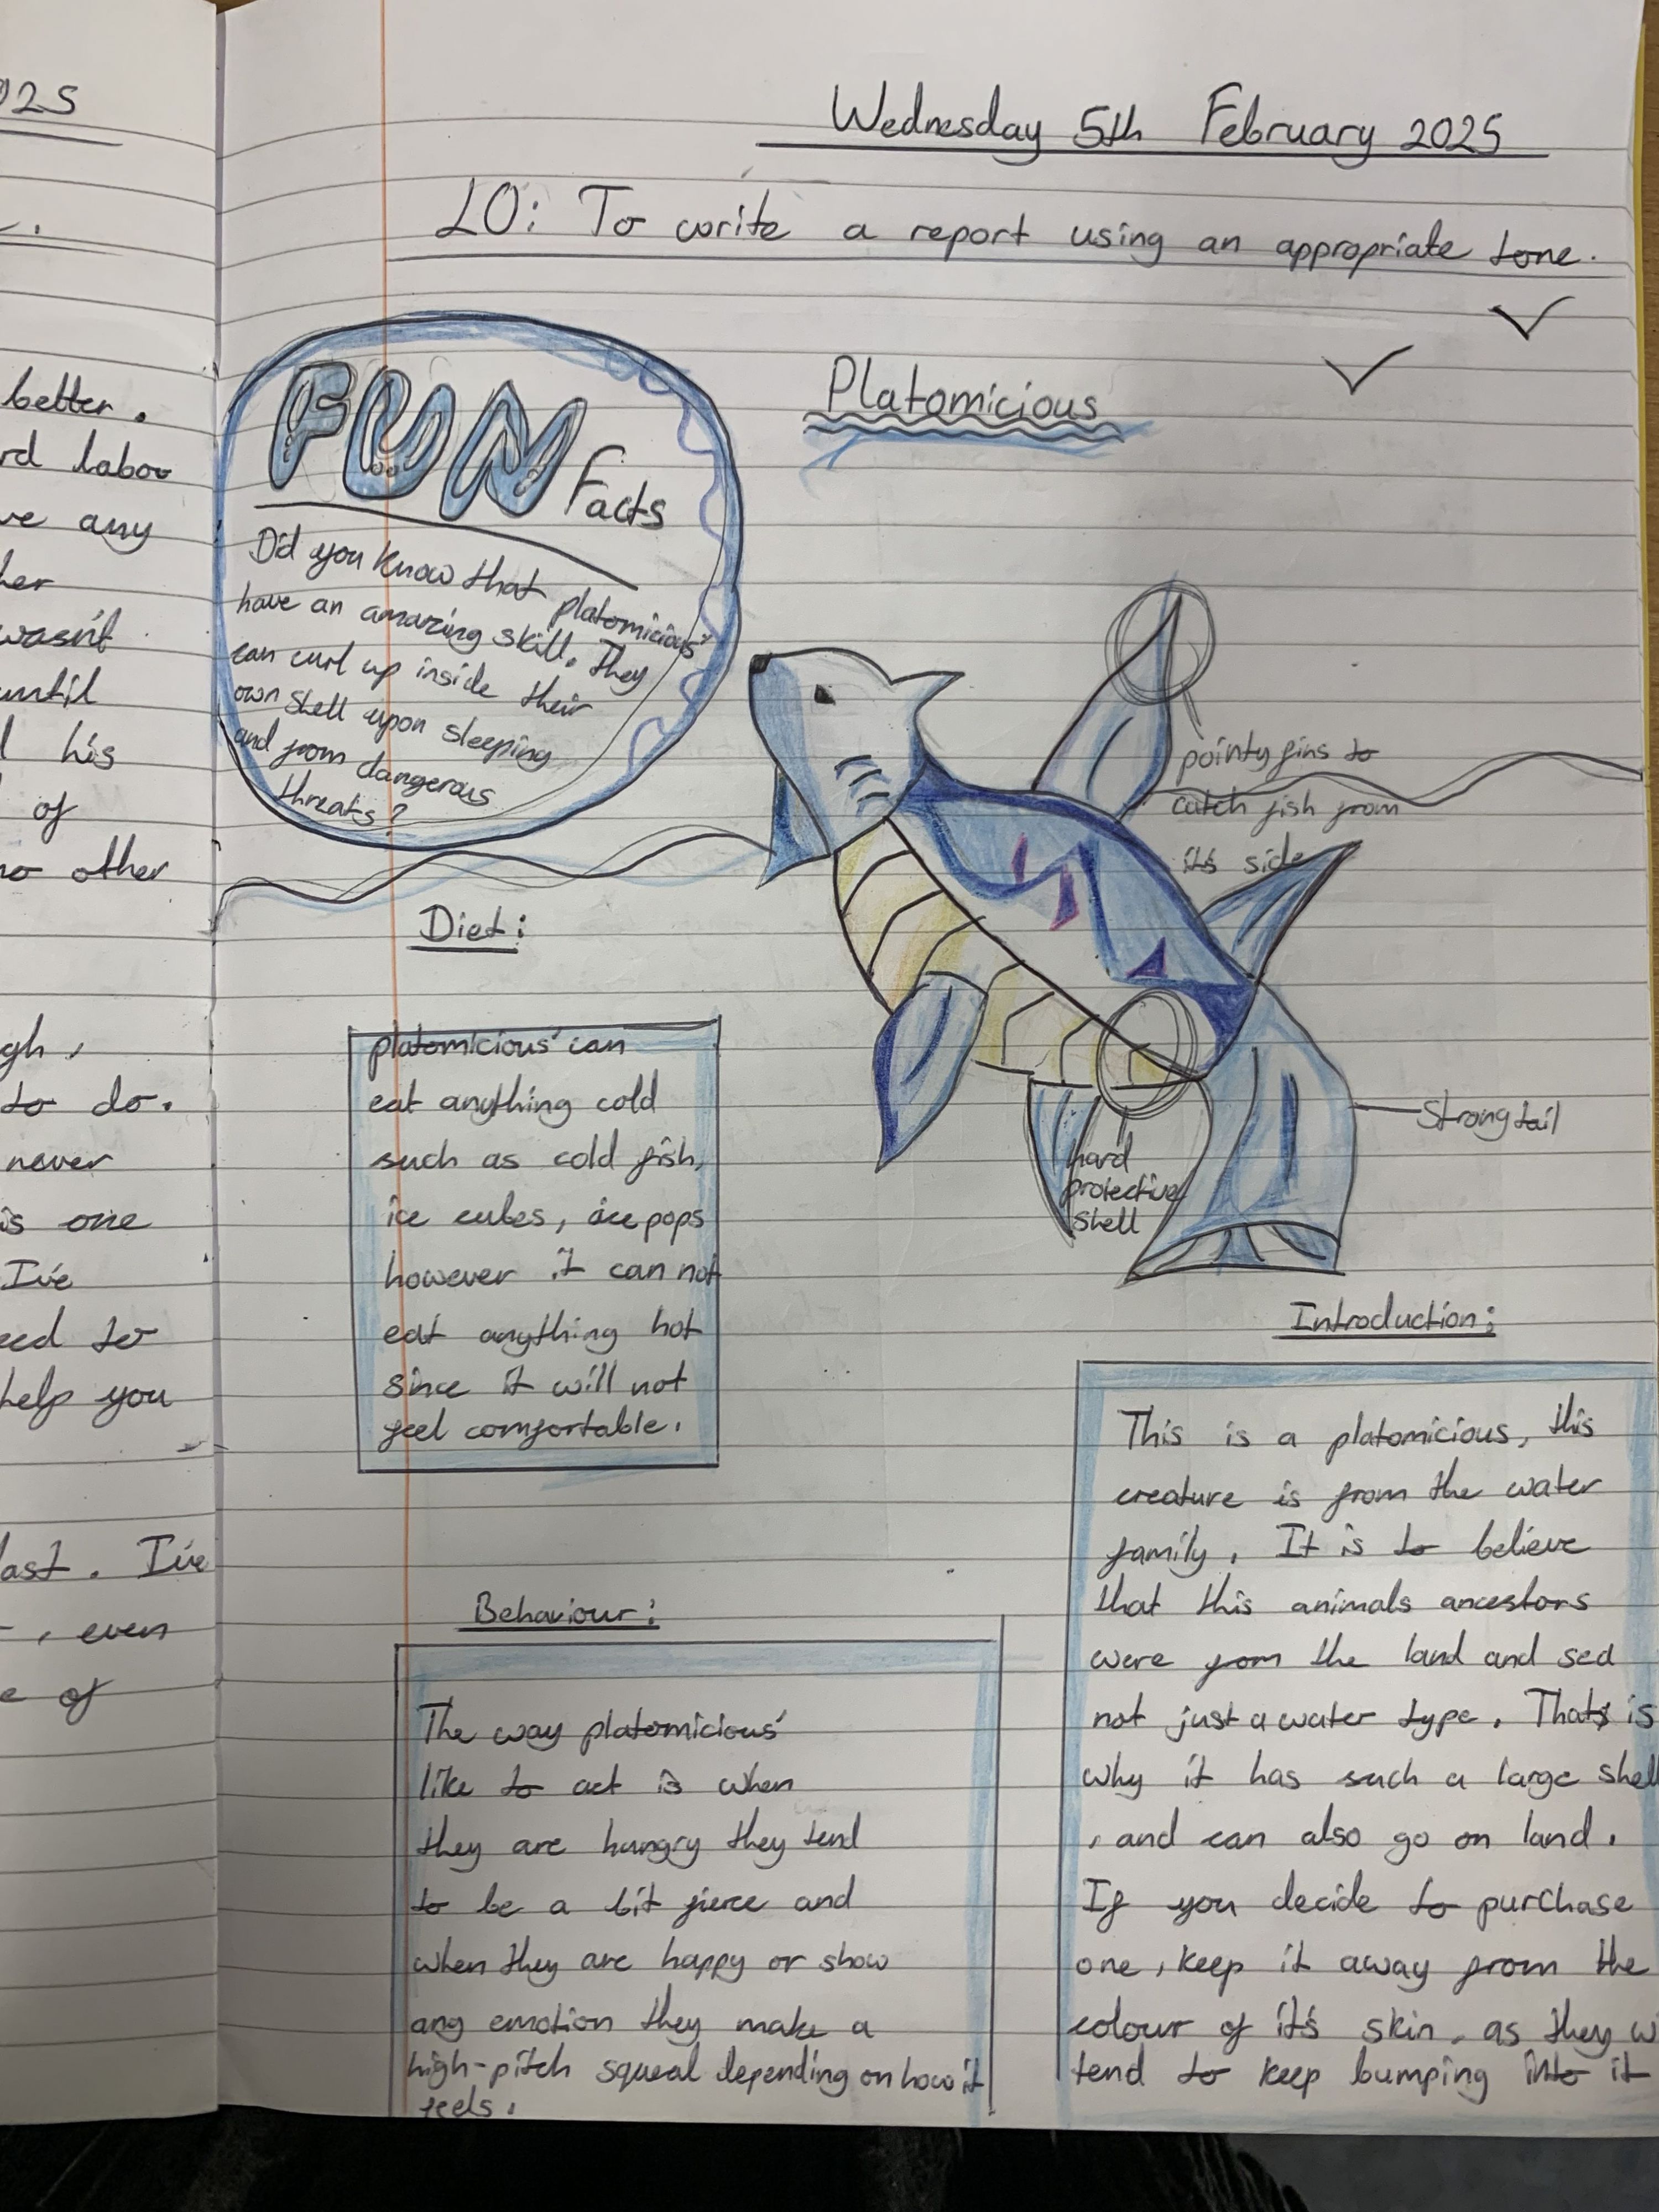 025
better.
rd labou
ve any
her
wasn't
until
l his
of
no other
gh,
to do.
never
is one
I've
eed to
help you
last. I've
, even
e of
Wednesday 5th February 2025
LO: To write a report using an appropriate tone.
Platomicious
FUN Facts
Did you know that platomicious'
have an amazing skill. They
can curl up inside their
own shell upon sleeping
and from dangerous
threats?
pointy fins to
catch fish from
it's side
Strong tail
hard
protective
shell
Diet:
platomicious' can
eat anything cold
such as cold fish,
ice cubes, ice pops
however it can not
eat anything hot
since it will not
feel comfortable.
Behaviour:
The way platomicious'
like to act is when
they are hungry they tend
to be a bit fierce and
when they are happy or show
any emotion they make a
high-pitch squeal depending on how it
feels.
Introduction:
This is a platomicious, this
creature is from the water
family. It is to believe
that this animals ancestors
were from the land and sea
not just a water type. Thats is
why it has such a large shell
, and can also go on land.
If you decide to purchase
one, keep it away from the
colour of it's skin, as they w
tend to keep bumping into it